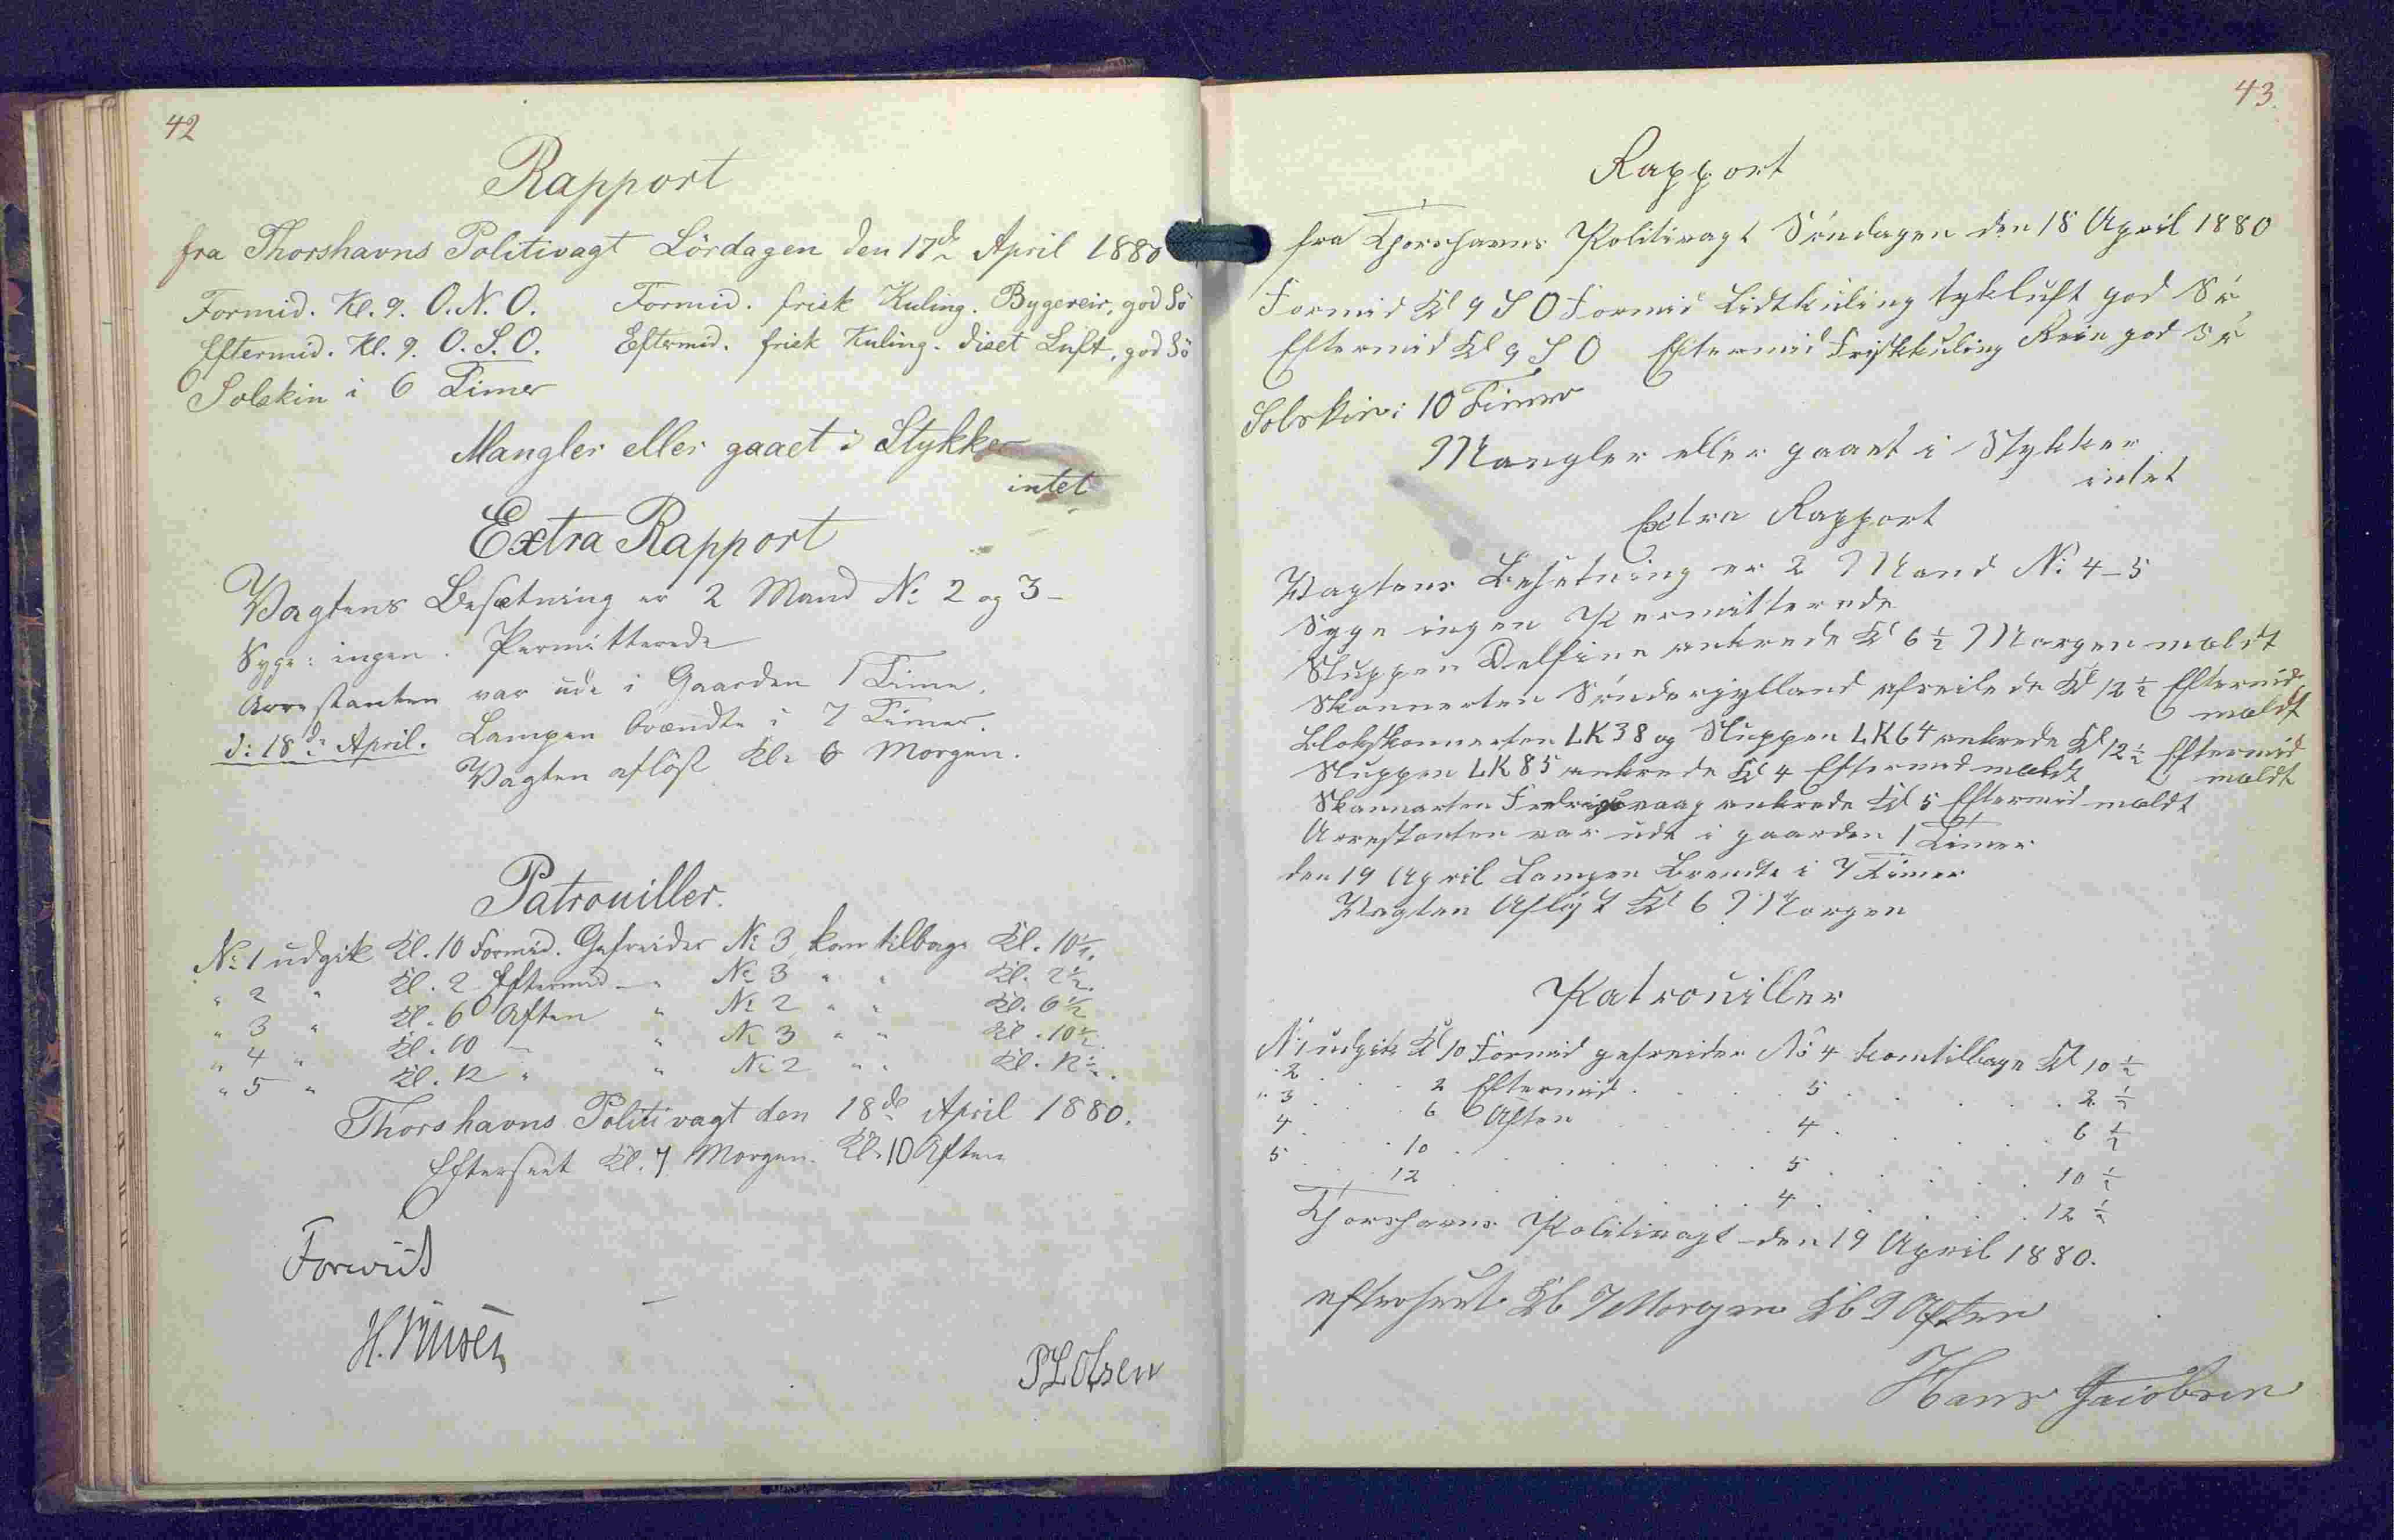 42
Rapport
fra Thorshavns Politivagt Lördagen den 17de April 1880
Formid. Kl. 9. O.N.O. Formid. frisk Kuling. Bygeveir, god Sö
Eftermid. Kl. 9. O.S.O. Eftermd. frisk Kuling. diset Luft, god Sö
Solskin i 6 Timer
Mangler eller gaaet i Stykker
intet
Extra Rapport
Vagtens Besætning er 2 Mand No 2 og 3 –
Syge: ingen. Permitterede
Arrestanten var ude i Gaarden 1 Time.
d: 18de April. Lampen brændte i 7 Timer.
Vagten aflöst Kl. 6 Morgen.
Patrouiller.
No 1 udgik Kl. 10 Formid. Gefreider No 3, kom tilbage Kl. 10½.
" 2 " Kl. 2 Eftermd – " No 3 " " Kl. 2½.
" 3 " Kl. 6 Aften " No 2 " " Kl. 6½
" 4 " Kl. 10 – " No 3 " " Kl. 10½.
" 5 " Kl. 12 " " No 2 " " Kl. 12½.
Thorshavns Politivagt den 18de April 1880.
Efterseet Kl. 7 Morgen. Kl. 10 Aften
Forevist
P L Olsen
43.
Rapport
fra Thorshavns Politivagt Söndagen den 18 April 1880
Formid Kl 9 S O Formid Lidtkuling tykluft god Sö
Eftermid Kl 9 S O Eftermid Friskkuling Rein god Sö
Solskin i 10 Timer
Mangler eller gaaet i Stykker
intet
Extra Rapport
Vagtens Besetning er 2 Mand No 4–5
Syge ingen Permitterede
Sluppen Delfine ankrede Kl 6½ Morgen meldt
Skonnerten Sönderjylland afseilede Kl 12½ Eftermid.
meldt
Blokskonnerten LK38 og Sluppen LK64 ankrede Kl 12½ Eftermid
meldt
Sluppen LK85 ankrede Kl 4 Eftermid meldt
Skonnerten Fredrigsvaag ankrede Kl 5 Eftermid meldt
Arrestanten var ude i gaarden 1 Timer
den 19 April Lampen Brendte i 7 Timer
Vagten Aflöst Kl 6 Morgen
Patrouiller
No 1 udgik Kl 10 Formid gefreider No 4 komtilbage Kl 10½
" 2 . . 2 Eftermid . . . 5 . . . 2½
" 3 . . 6 Aften . . 4 . . . 6½
4 . . 10 . . . 5 . . . 10½
5 . . 12 . . . 4 . . . 12½
Thorshavns Politivagt den 19 April 1880.
efterseet Kl 7 Morgen Kl 9 Aften
Hans Jacobsen